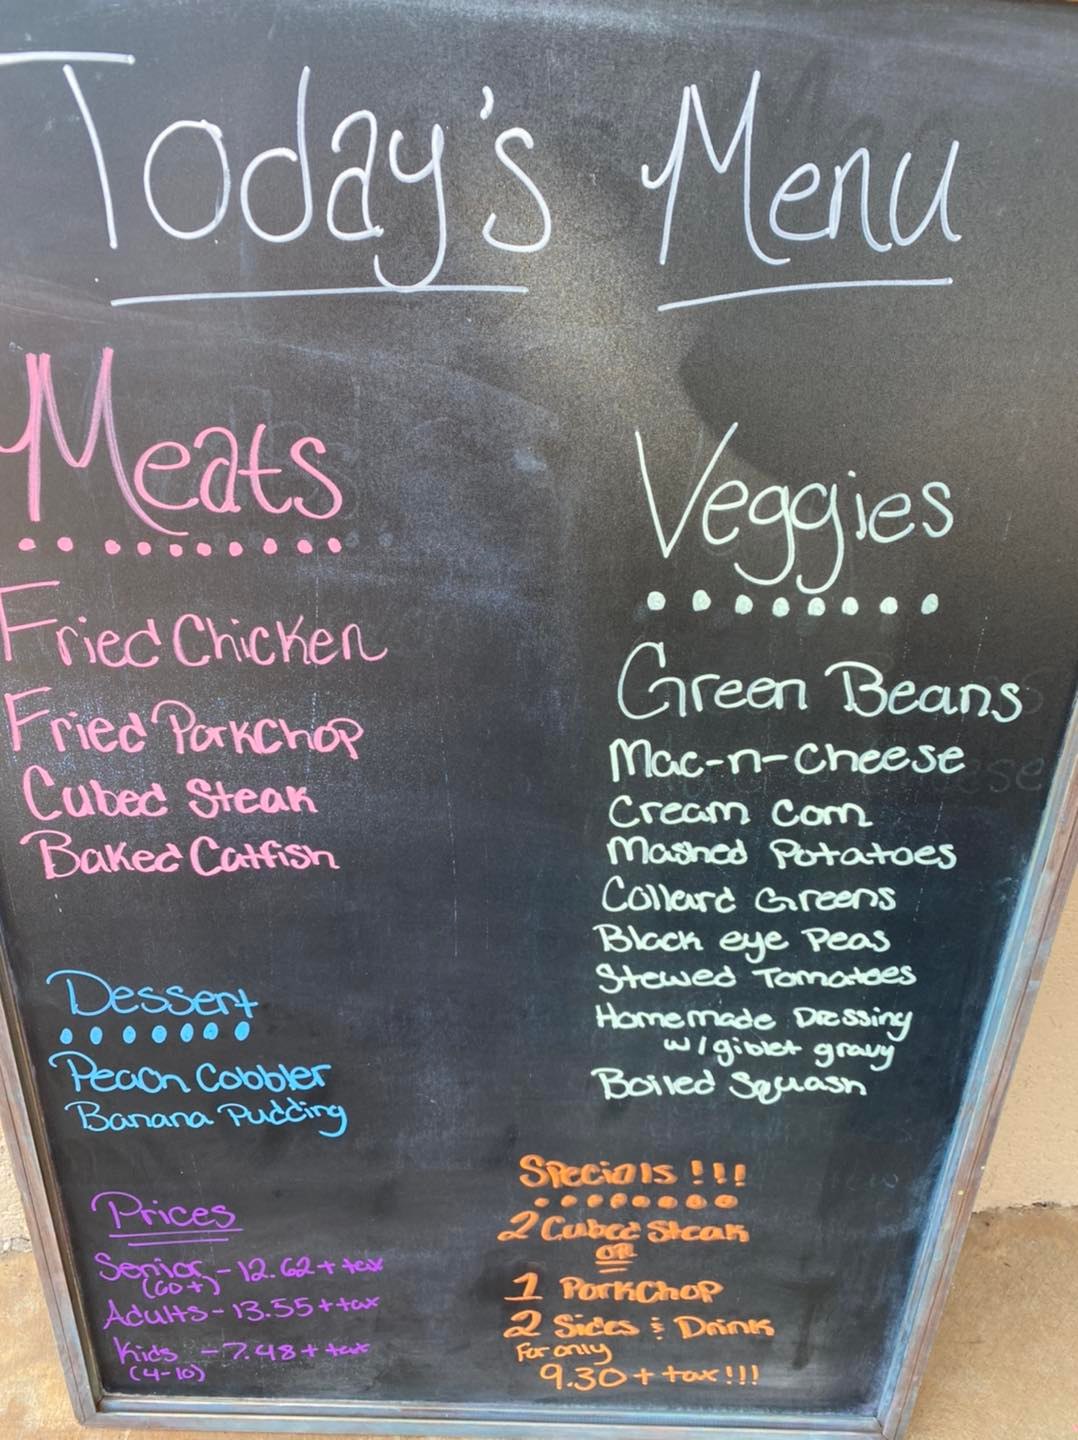 Today's Menu
Meats
Fried Chicken
Fried PorkChop
Cubed Steak
Baked Catfish
Dessert
Peach Cobbler
Banana Pudding
Prices
Senior - 12.62 + tax
(60+)
Adults - 13.55 + tax
Kids - 7.48 + tax
(4-10)
Veggies
Green Beans
Mac-n-Cheese
Cream Corn
Mashed Potatoes
Collard Greens
Black eye Peas
Stewed Tomatoes
Homemade Dressing
w/ giblet gravy
Boiled Squash
Specials!!!
2 Cubed Steak
OR
1 PorkChop
2 Sides & Drink
For only
9.30 + tax!!!